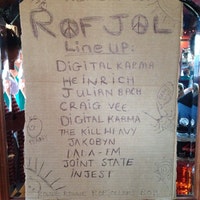 ROFJOL
LINE UP:
DIGITAL KARMA
HEINRICH
JULIAN BACH
CRAIG VEE
DIGITAL KARMA
THE KILL HEAVY
JAKOBYN
LALA-FM
JOINT STATE
INJEST